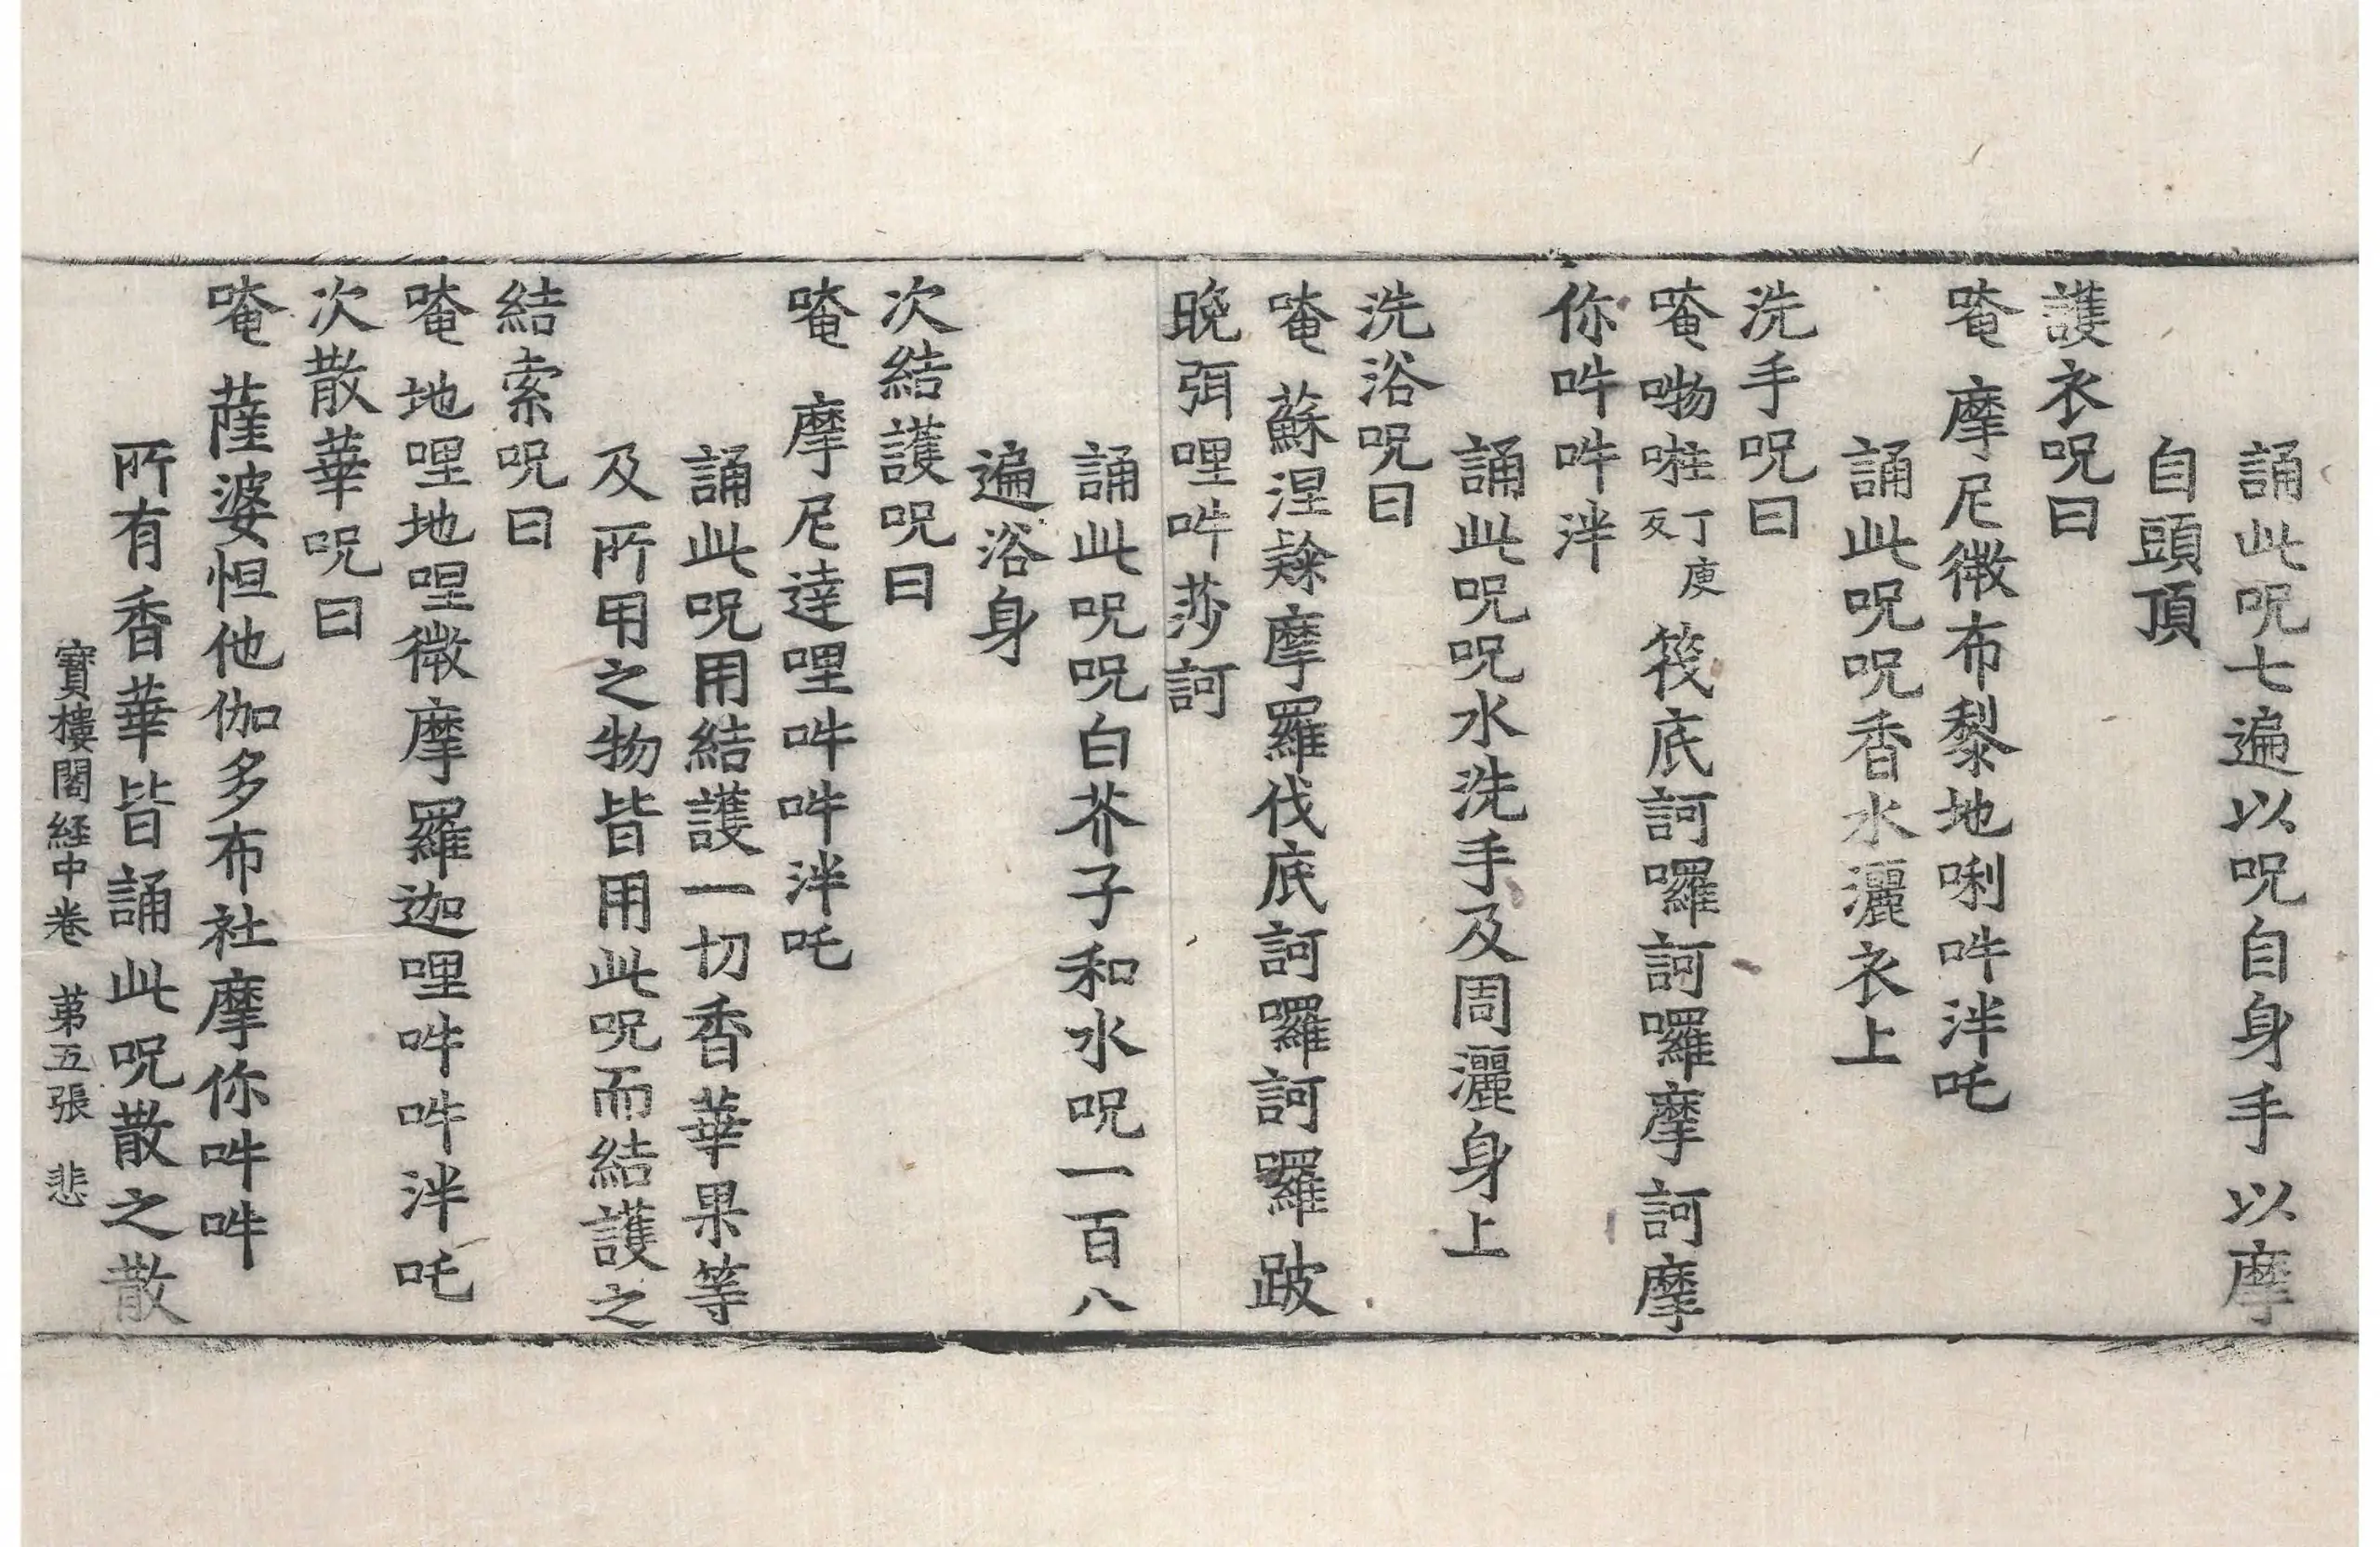 誦此呪七遍以呪自身手以摩
自頭頂
護衣呪曰
唵 摩尼微布黎地唎吽泮吒
誦此呪呪香水灑衣上
洗手呪曰
唵嗍嚾丁庾反筏底訶囉訶囉摩訶摩
你吽吽泮
誦此呪呪水洗手及周灑身上
洗浴呪曰
唵 蘇涅摩羅伐底訶囉訶囉跛
晚弭哩吽莎訶
誦此呪呪白芥子和水呪一百八
遍浴身
次結護呪曰
唵 摩尼達哩吽吽泮吒
誦此呪用結護一切香華果等
及所用之物皆用此呪而結護之
結索呪曰
唵 地哩地哩微摩羅迦哩吽吽泮吒
次散華呪曰
唵 薩婆怛他伽多布社摩你吽吽
所有香華皆誦此呪散之散
寶樓閣経中卷 苐五張 悲